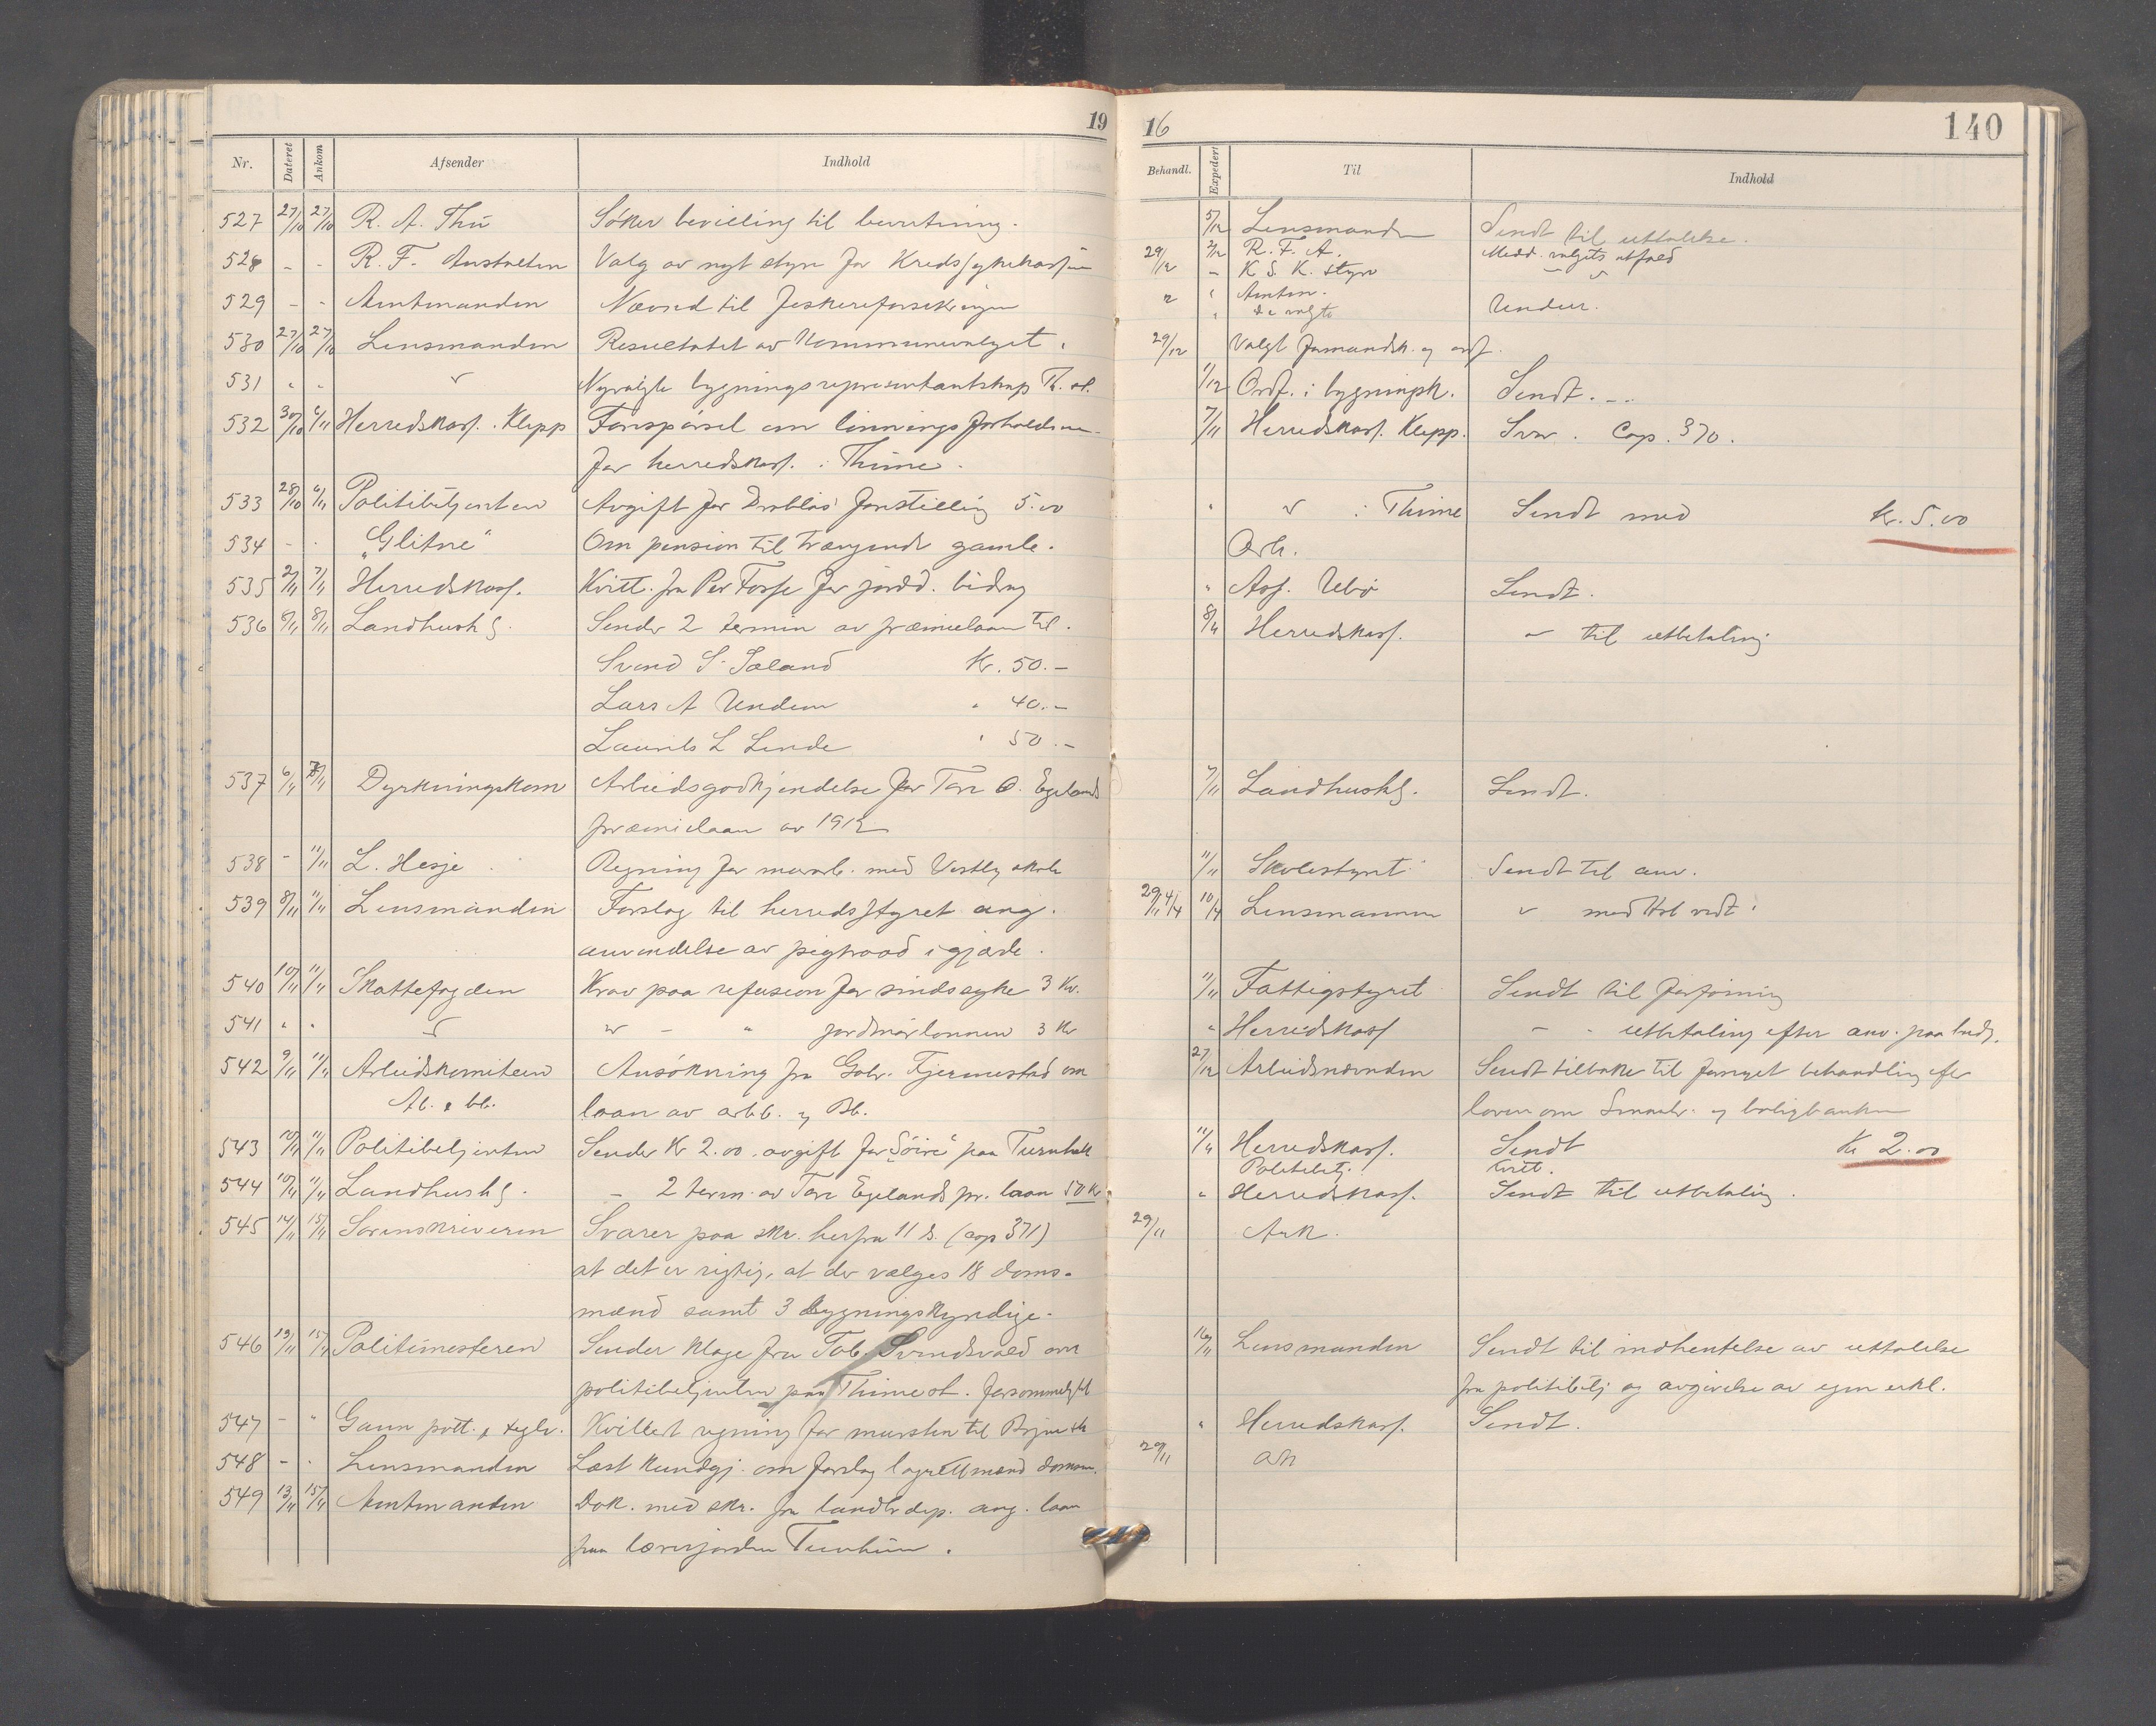 19
Nr. Dateret Ankom Afsender Indhold
527 27/10 27/10 R. A. Thu Söker bevilling til bevertning.
528 - - R. F. Anstalten Valg av nyt styre for Kredssykekassen
529 - - Amtmanden Nævnd til fiskereforsikringen
530 27/10 27/10 Lensmanden Resultatet av Kommunevalget.
531 " " Nyvalgte bygningsrepresentantskap Th. st.
532 30/10 6/11 Herredskass. Klepp Forespörsel om lönningsforholdene
for herredskass. i Thime.
533 28/10 6/11 Politibetjenten Avgift for forestilling 5.00
534 - - "Glitne" Om pension til trængende gamle.
535 2/11 7/11 Herredskass. Kvitt. fra Per Fosse for jordd. bidrag
536 8/11 8/11 Landhush s. Sender 2 termin av præmielaan til.
Svend S. Sæland Kr. 50.-
Lars A Undem " 40.-
Laurits L Lende " 50.-
537 6/11 7/11 Dyrkningskom Arbeidsgodkjendelse for Tore O. Egelands
præmielaan av 1912
538 - 11/11 L. Hesje Regning for murarb. med Vestly skole
539 8/11 11/11 Lensmanden Forslag til herredsstyret ang.
anvendelse av pigtraad i gjærde.
540 10/11 11/11 Skattefogden Krav paa refusion for sindssyke 3 Kv.
541 " " - " jordmorlönnen 3 Kv
542 9/11 11/11 Arbeidskomiteen Ansökning fra Gabr. Tjermestad om
Ab. & bb. laan av arbb. og Bb.
543 10/11 11/11 Politibetjenten Sender Kr 2.00 avgift for "Söiré" paa Turnhall
544 10/11 11/11 Landhush s. - 2 term. av Tore Egelands pr. laan 50 Kr.
545 14/11 15/11 Sorenskriveren Svarer paa skr. herfra 11 ds. (cop 371)
at det er rigtig, at der vælges 18 doms-
mænd samt 3 bygningskyndige.
546 13/11 15/11 Politimesteren Sender klage fra Tob. Svendsvold om
politibetjenten paa Thime st. forsommelighet
547 - " Gann pott. & teglv. Kvittert regning for mursten til Bryne sk
548 - " Lensmanden Læst kundgj. om forslag lagrettmænd domsm.
549 13/11 15/11 Amtmanden Dok. med skr. fra landbr dep. ang. laan
paa lærerjorden Tunheim.
16 140
Behandl. Expedert Til Indhold
5/12 Lensmanden Sendt til uttalelse.
29/12 2/12 R. F. A. Medd. valgets utfald
- K S. K. styre
" Amtm. Underr.
" De valgte
29/12 Valgt formandsk. og ordf.
1/12 Ordf. i bygningsk. Sendt.
7/11 Herredskass. Klepp. Svar. Cop. 370.
" i Thime Sendt med Kr. 5.00
Ark.
" Ass. Sendt.
8/11 Herredskass. - til utbetaling
7/11 Landhush s. Sendt.
11/11 Skolestyret Sendt til anv.
29/11 4/4 10/4 Lensmannen
11/11 Fattigstyret Sendt til forföining
" Herredskass - - utbetaling efter anv. paa
27/12 Arbeidsnævnden Sendt tilbake til fornyet behandling efter
loven om Smaabr. og boligbanken
11/11 Herredskass. Sendt Kr 2.00
Politibetj. Kvitt.
" Herredskass. Sendt til utbetaling.
29/11 Ark.
16/11 Lensmanden Sendt til indhentelse av uttalelse
fra politibetj og avgivelse av egen erkl.
" Herredskass. Sendt.
29/11 Ark